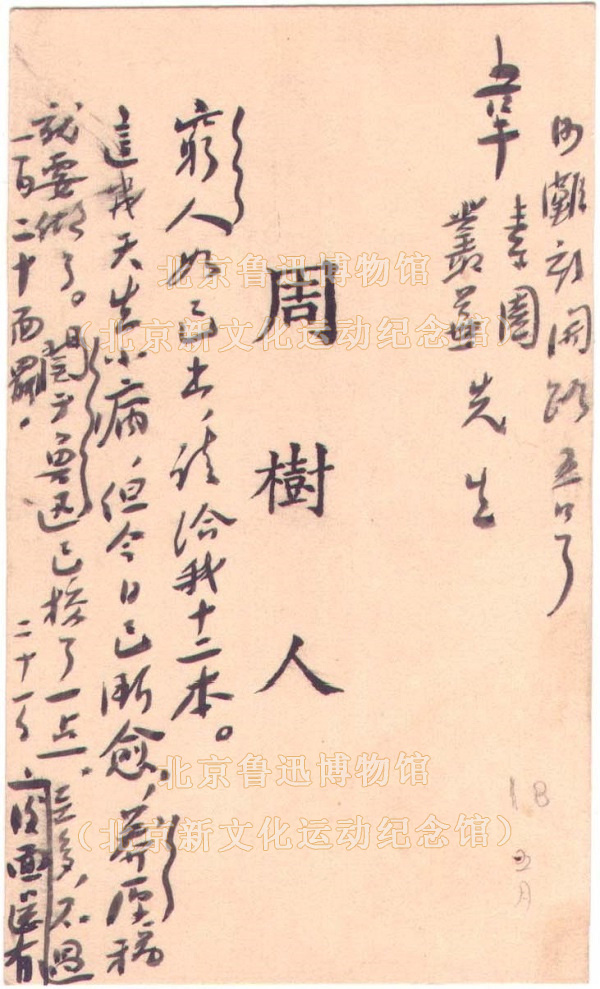 沙灘新開路五号
韋素園
叢蕪先生
周樹人
窮人如已出，請給我十二本。
這幾天生小病，但今日已漸愈，莽原稿
就要做了。關于魯迅已校了一点，至多，不過
一百二十面罷。
二十一日
後面還有
18
五月
北京鲁迅博物馆
（北京新文化运动纪念馆）
北京鲁迅博物馆
（北京新文化运动纪念馆）